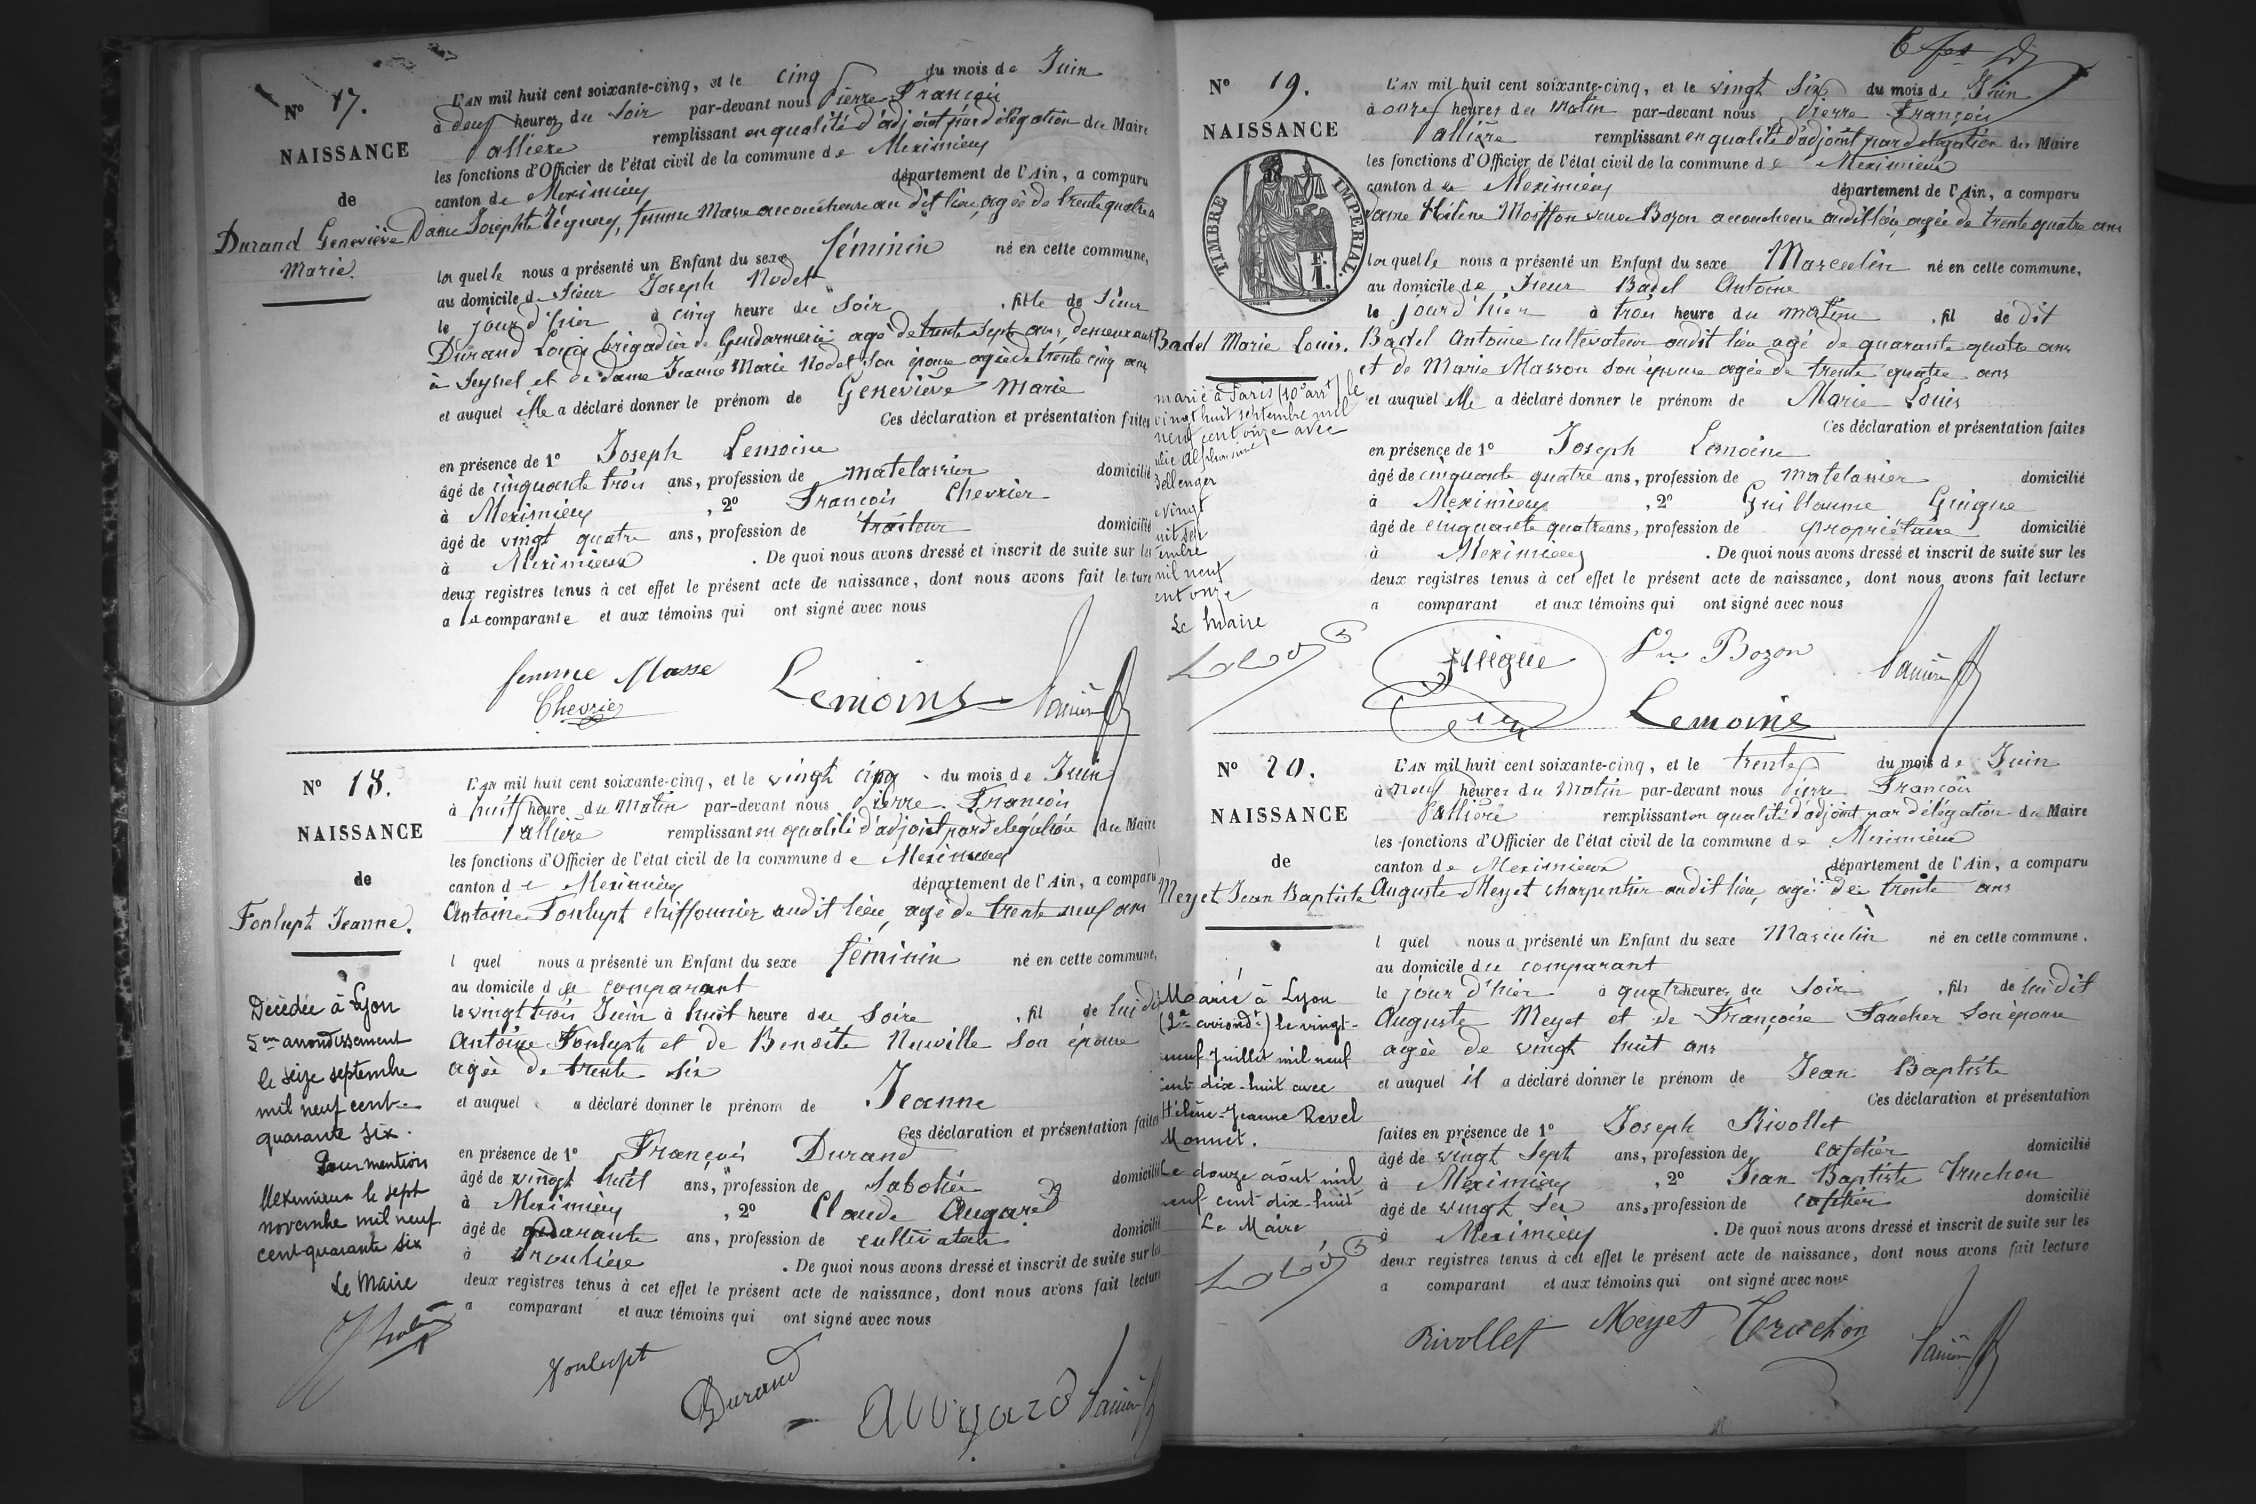 N° 17.
NAISSANCE
de
Durand Geneviève
Marie.
L'AN mil huit cent soixante-cinq, et le cinq du mois de Juin
à deux heures du soir par-devant nous Pierre François
Pallière remplissant en qualité d'adjoint par délégation du Maire
les fonctions d'Officier de l'état civil de la commune de Meximieux
canton de Meximieux département de l'Ain, a comparu
Dame Josephte Téguay, femme Masse accoucheuse au dit lieu, agée de trente quatre a
laquelle nous a présenté un Enfant du sexe féminin né en cette commune,
au domicile de Sieur Joseph Nodet
le jour d'hier à cinq heure du Soir , fille de Sieur
Durand Louis brigadier de Gendarmerie agé de trente sept ans, demeurant
à Seyssel et de dame Jeanne Marie Nodet son épouse agée de trente cinq ans
et auquel elle a déclaré donner le prénom de Geneviève Marie
Ces déclaration et présentation faites
en présence de 1° Joseph Lemoine
âgé de cinquante trois ans, profession de matelassier domicilié
à Meximieux , 2° François Chevrier
âgé de vingt quatre ans, profession de traiteur domicilié
à Meximieux . De quoi nous avons dressé et inscrit de suite sur les
deux registres tenus à cet effet le présent acte de naissance, dont nous avons fait lecture
a la comparante et aux témoins qui ont signé avec nous
femme Masse
Chevrier
Lemoine
N° 18.
NAISSANCE
de
Fonlupt Jeanne.
Décédée à Lyon
5em arrondissement
le seize septembre
mil neuf cent
quarante six.
Pour mention
Meximieux le sept
novembre mil neuf
cent quarante six
Le Maire
L'AN mil huit cent soixante-cinq, et le vingt cinq du mois de Juin
à huit heure du Matin par-devant nous Pierre François
Pallière remplissant en qualité d'adjoint par délégation du Maire
les fonctions d'Officier de l'état civil de la commune de Meximieux
canton de Meximieux département de l'Ain, a comparu
Antoine Fonlupt chiffonnier audit lieu, agé de trente neuf ans
l quel nous a présenté un Enfant du sexe féminin né en cette commune,
au domicile du comparant
le vingt trois Juin à huit heure du Soire , fil de lui dit
Antoine Fonlupt et de Benoite Neuville son épouse
agée de trente six
et auquel a déclaré donner le prénom de Jeanne
Ces déclaration et présentation faites
en présence de 1° François Durand
âgé de vingt huit ans, profession de Sabotier domicilié
à Meximieux , 2° Claude Augard
âgé de quarante ans, profession de cultivateur domicilié
à . De quoi nous avons dressé et inscrit de suite sur les
deux registres tenus à cet effet le présent acte de naissance, dont nous avons fait lecture
a comparant et aux témoins qui ont signé avec nous
Fonlupt
Durand
Auugard
N° 19.
NAISSANCE
TIMBRE IMPERIAL.
F.
1.
Badel Marie Louis.
marié à Paris (10e arrt) le
vingt huit septembre mil
neuf cent onze avec
Bellenger
vingt
mil neuf
cent onze
Le Maire
L'AN mil huit cent soixante-cinq, et le vingt Six du mois de Juin
à onze heures du Matin par-devant nous Pierre François
Pallière remplissant en qualité d'adjoint par délégation du Maire
les fonctions d'Officier de l'état civil de la commune de Meximieux
canton de Meximieux département de l'Ain, a comparu
Dame Hélène Moiffon veuve Bozon accoucheuse audit lieu, agée de trente quatre ans
laquelle nous a présenté un Enfant du sexe Masculin né en cette commune,
au domicile de Sieur Badel Antoine
le jour d'hier à trois heure du matin , fil de dit
Badel Antoine cultivateur audit lieu agé de quarante quatre ans
et de Marie Masson son épouse agée de trente quatre ans
et auquel elle a déclaré donner le prénom de Marie Louis
Ces déclaration et présentation faites
en présence de 1° Joseph Lemoine
âgé de cinquante quatre ans, profession de matelassier domicilié
à Meximieux , 2° Guillaume Guigue
âgé de cinquante quatre ans, profession de propriétaire domicilié
à Meximieux . De quoi nous avons dressé et inscrit de suite sur les
deux registres tenus à cet effet le présent acte de naissance, dont nous avons fait lecture
a comparant et aux témoins qui ont signé avec nous
Guigue
Ve Bozon
Lemoine
N° 20.
NAISSANCE
de
Meyet Jean Baptiste
Marié à Lyon
(2e arrondt) le vingt-
neuf Juillet mil neuf
cent dix-huit avec
Hélène-Jeanne Revel
Monnet.
Le douze août mil
neuf cent dix-huit
Le Maire
L'AN mil huit cent soixante-cinq, et le trente du mois de Juin
à Neuf heures du Matin par-devant nous Pierre François
Pallière remplissant en qualité d'adjoint par délégation du Maire
les fonctions d'Officier de l'état civil de la commune de Meximieux
canton de Meximieux département de l'Ain, a comparu
Auguste Meyet charpentier audit lieu, agé de trente ans
l quel nous a présenté un Enfant du sexe Masculin né en cette commune.
au domicile du comparant
le jour d'hier à quatre heures du Soir , fils de lui dit
Auguste Meyet et de Françoise Faucher son épouse
agée de vingt huit ans
et auquel il a déclaré donner le prénom de Jean Baptiste
Ces déclaration et présentation
faites en présence de 1° Joseph Rivollet
âgé de vingt Sept ans, profession de cafetier domicilié
à Meximieux , 2° Jean Baptiste Truchon
âgé de vingt Six ans, profession de cafetier domicilié
à Meximieux . De quoi nous avons dressé et inscrit de suite sur les
deux registres tenus à cet effet le présent acte de naissance, dont nous avons fait lecture
a comparant et aux témoins qui ont signé avec nous
Rivollet Meyet Truchon